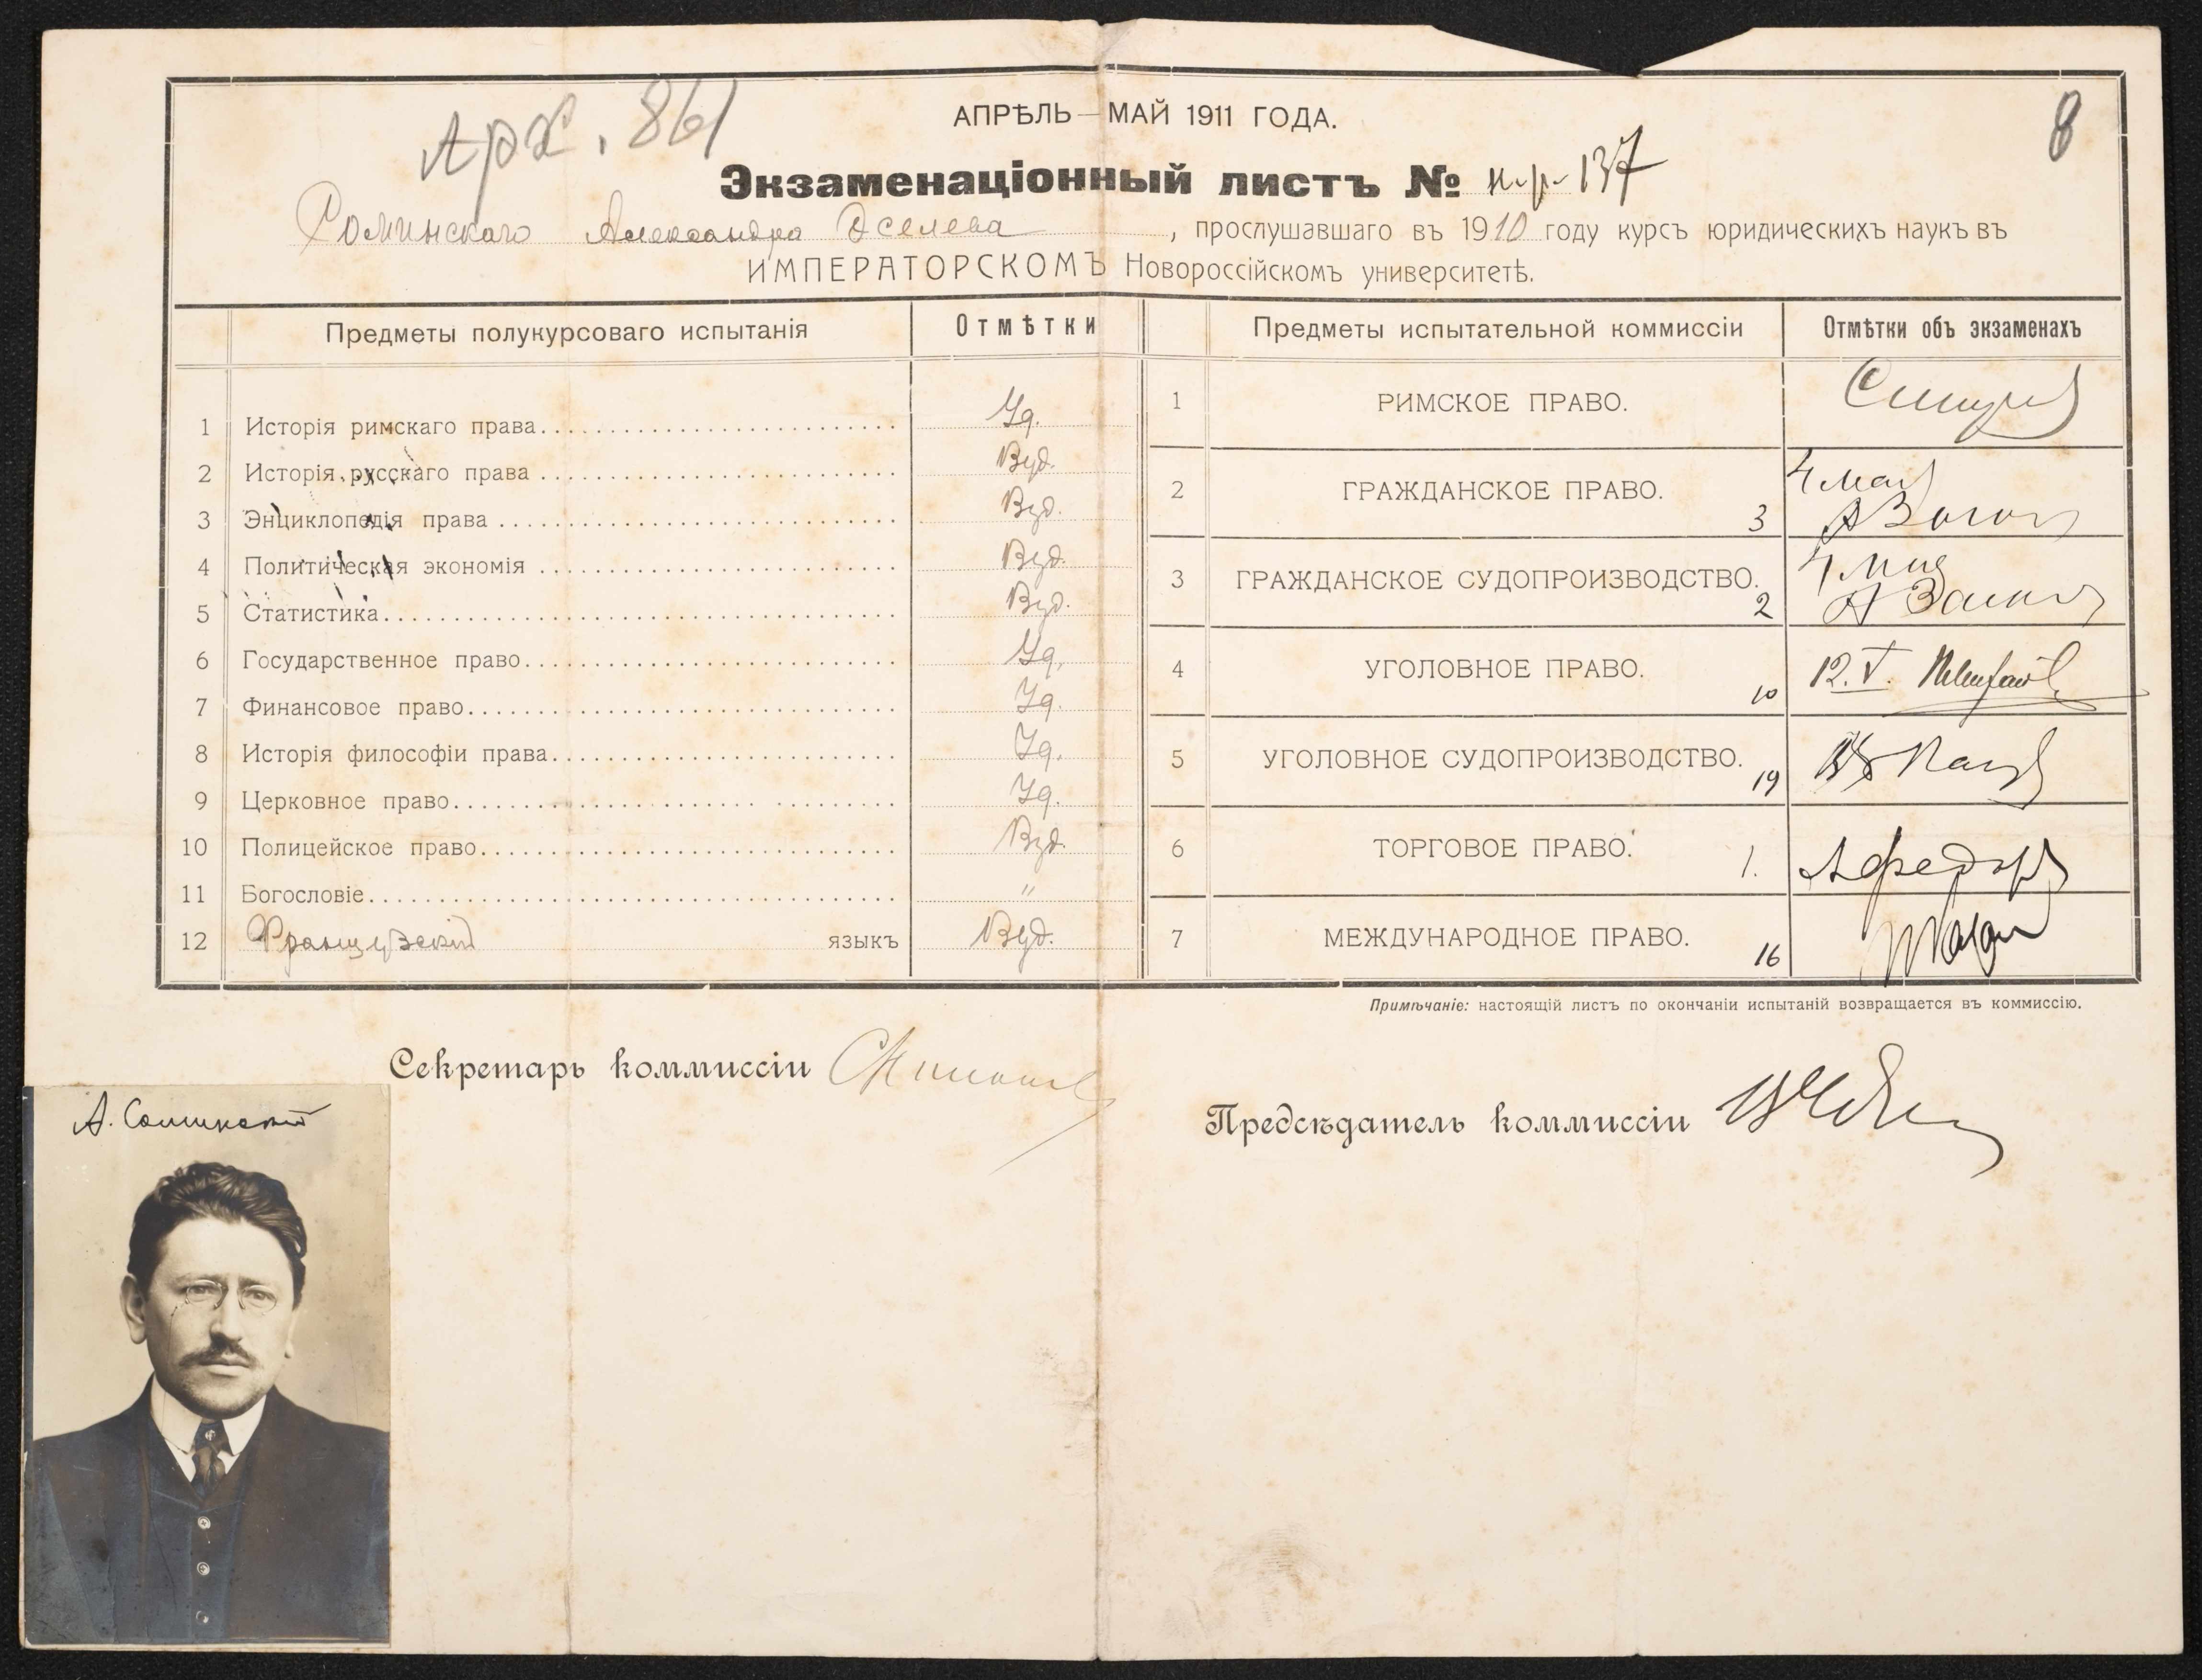 Арх. 861
8
АПРѢЛЬ—МАЙ 1911 ГОДА.
Экзаменаціонный листъ № н-р-137
Соминскаго Александра Эселева, прослушавшаго въ 1910 году курсъ юридическихъ наукъ въ
ИМПЕРАТОРСКОМЪ Новороссійскомъ университетѣ.
Предметы полукурсоваго испытанія Отмѣтки
1 Исторія римскаго права Уд.
2 Исторія русскаго права Вуд.
3 Энциклопедія права Вуд.
4 Политическая экономія Вуд.
5 Статистика Вуд.
6 Государственное право Уд.
7 Финансовое право Уд.
8 Исторія философіи права Уд.
9 Церковное право Уд.
10 Полицейское право Вуд.
11 Богословіе "
12 Французскій языкъ Вуд.
Предметы испытательной коммиссіи Отмѣтки объ экзаменахъ
1 РИМСКОЕ ПРАВО.
2 ГРАЖДАНСКОЕ ПРАВО. 3 4 мая
3 ГРАЖДАНСКОЕ СУДОПРОИЗВОДСТВО. 2 4 мая
4 УГОЛОВНОЕ ПРАВО. 10 12.V.
5 УГОЛОВНОЕ СУДОПРОИЗВОДСТВО. 19
6 ТОРГОВОЕ ПРАВО. 1.
7 МЕЖДУНАРОДНОЕ ПРАВО. 16
Примѣчаніе: настоящій листъ по окончаніи испытаній возвращается въ коммиссію.
Секретарь коммиссіи
Предсѣдатель коммиссіи
А. Соминскій